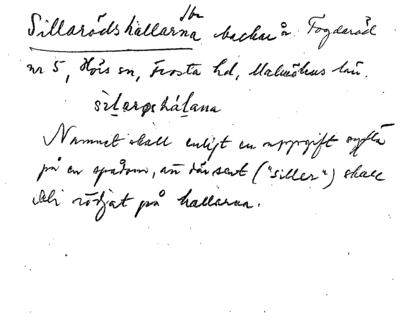 Sillarödshallarna backar å Fogdaröd
nr 5, Hörs sn, Frosta hd, Malmöhus län.
silarøshálana
Namnet skall enligt en uppgift syfta
på en spådom, att där sent ("siller") skall
bli rödjat på hallarna.